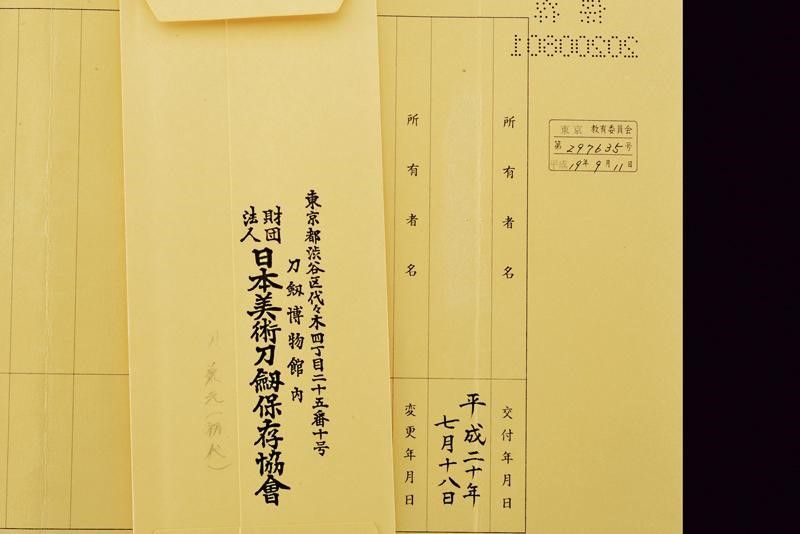 10800202
東京 教育委員会
第297635号
平成19年9月11日
所有者名
交付年月日
平成二十年
七月十八日
所有者名
変更年月日
東京都渋谷区代々木四丁目二十五番十号
刀剱博物館内
財団
法人
日本美術刀剱保存協會